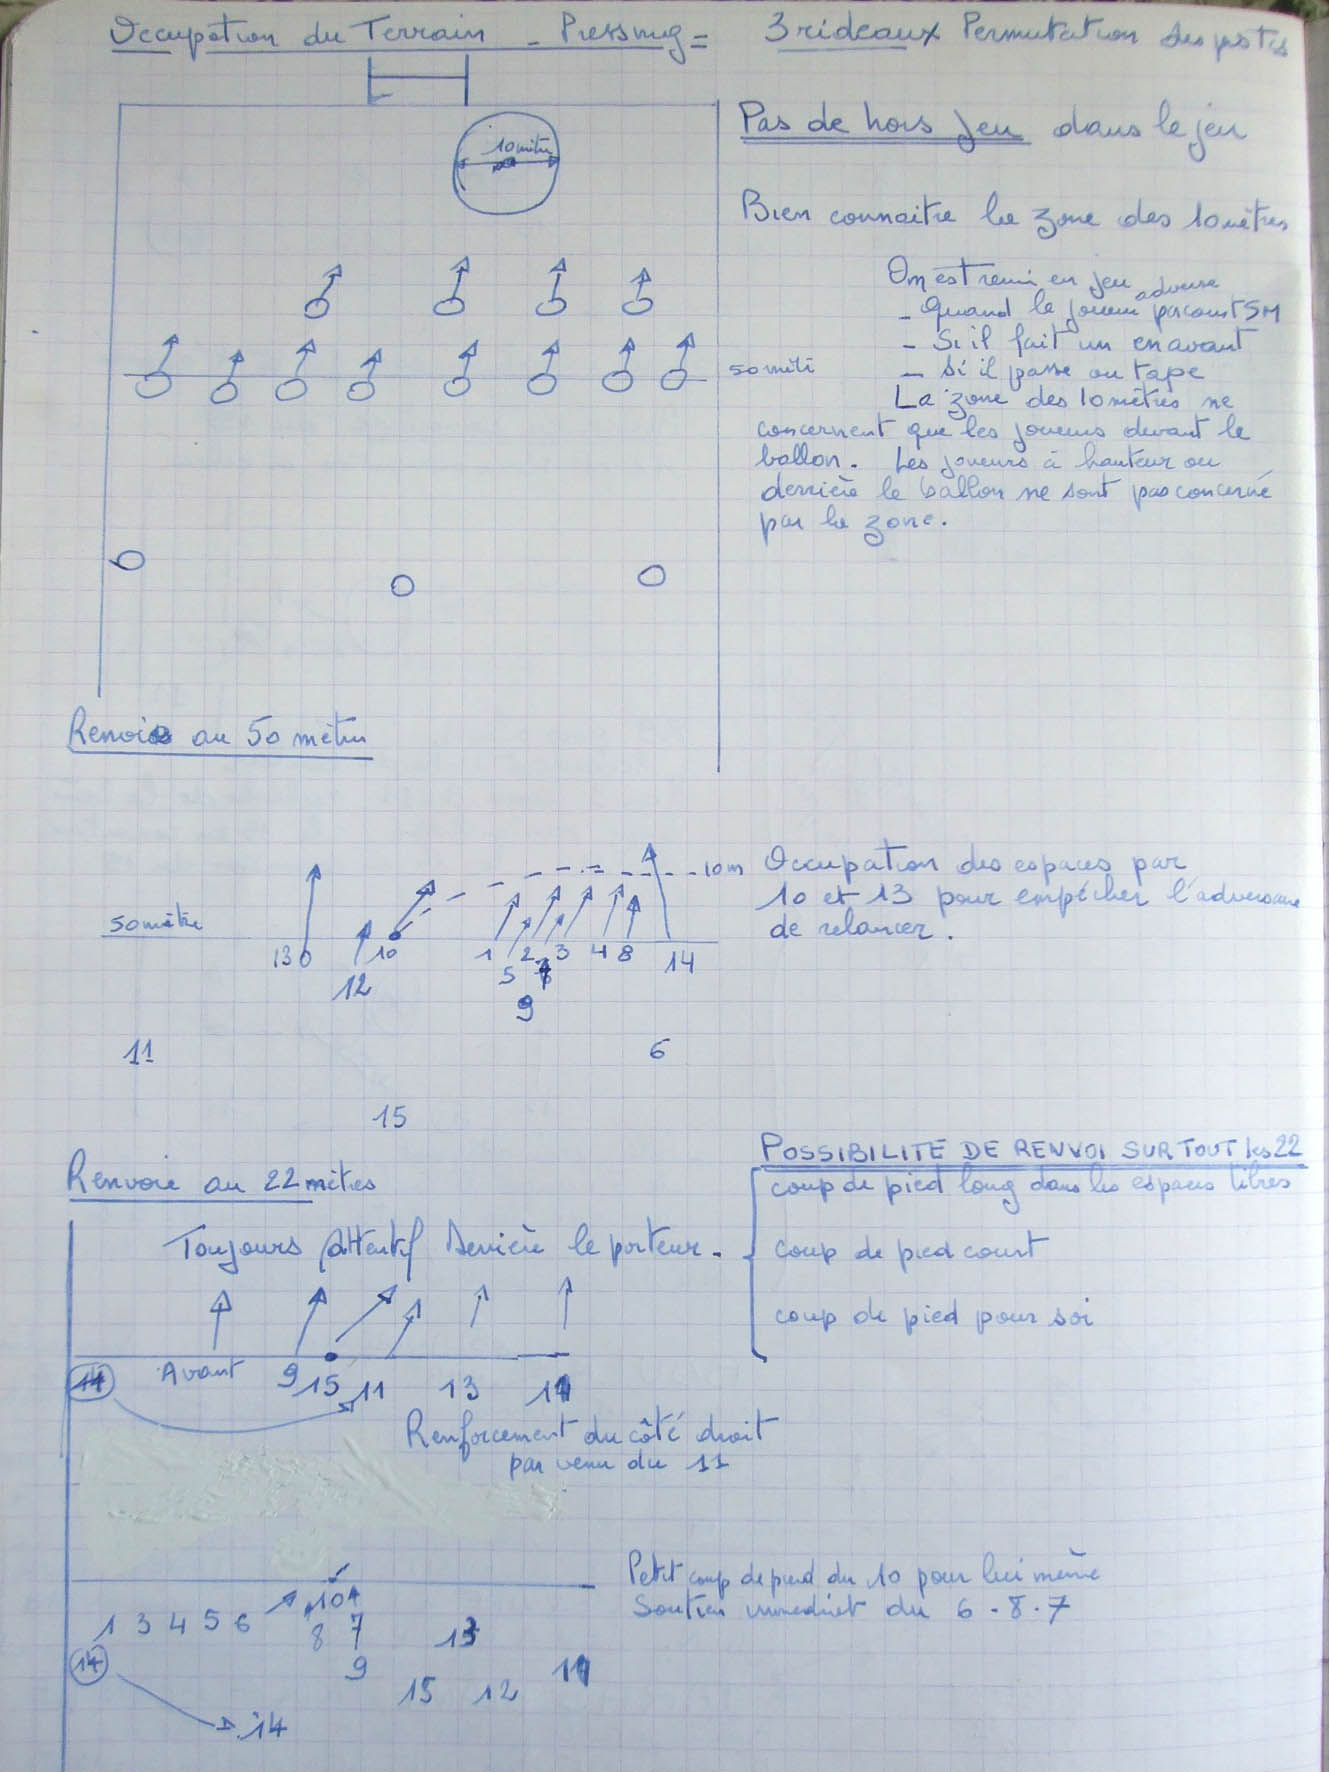 Occupation du Terrain - Pressing = 3 rideaux Permutation des postes
10 mètre
Pas de hors jeu dans le jeu
Bien connaitre la zone des 10 mètres
On est remi en jeu adverse
- Quand le joueur parcourt 5M
- Si il fait un en avant
- Si il passe ou tape
50 mètre
La zone des 10 mètres ne
concernent que les joueurs devant le
ballon. Les joueurs à hauteur ou
derrière le ballon ne sont pas concerné
par la zone.
Renvois au 50 mètres
10m
Occupation des espaces par
10 et 13 pour empécher l'adversaire
de relancer.
50 mètre
13 10 1 2 3 4 8 14
12 5 7
9
11 6
15
POSSIBILITE DE RENVOI SUR TOUT les 22
Renvoie au 22 mètres
coup de pied long dans les espaces libres
Toujours attentif Derrière le porteur.
coup de pied court
coup de pied pour soi
Avant 9 15 11 13
Renforcement du côté droit
par venu du 11
Petit coup de pied du 10 pour lui même
Soutien immediat du 6 - 8 - 7
10
1 3 4 5 6 8 7 13
14 9
15 12
14